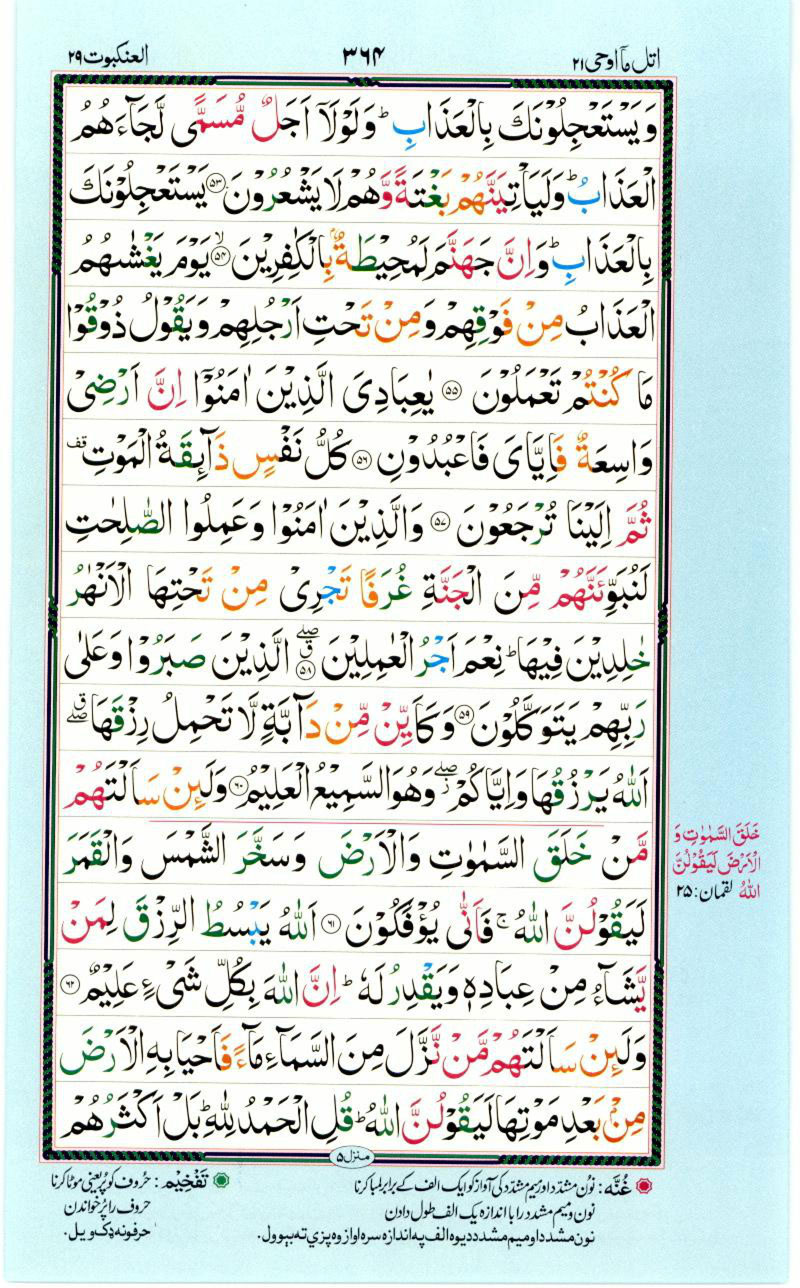 اتل ما اوحی ۲۱
۳۶۴
العنکبوت ۲۹
وَيَسْتَعْجِلُوْنَكَ بِالْعَذَابِ ؕ وَلَوْلَاۤ اَجَلٌ مُّسَمًّى لَّجَآءَهُمُ
الْعَذَابُ ؕ وَلَيَاْتِيَنَّهُمْ بَغْتَةً وَّهُمْ لَا يَشْعُرُوْنَ ﴿۵۳﴾ يَسْتَعْجِلُوْنَكَ
بِالْعَذَابِ ؕ وَاِنَّ جَهَنَّمَ لَمُحِيْطَةٌۢ بِالْكٰفِرِيْنَ ۙ﴿۵۴﴾ يَوْمَ يَغْشٰىهُمُ
الْعَذَابُ مِنْ فَوْقِهِمْ وَمِنْ تَحْتِ اَرْجُلِهِمْ وَيَقُوْلُ ذُوْقُوْا
مَا كُنْتُمْ تَعْمَلُوْنَ ﴿۵۵﴾ يٰعِبَادِىَ الَّذِيْنَ اٰمَنُوْۤا اِنَّ اَرْضِىْ
وَاسِعَةٌ فَاِيَّاىَ فَاعْبُدُوْنِ ﴿۵۶﴾ كُلُّ نَفْسٍ ذَآئِقَةُ الْمَوْتِ قف
ثُمَّ اِلَيْنَا تُرْجَعُوْنَ ﴿۵۷﴾ وَالَّذِيْنَ اٰمَنُوْا وَعَمِلُوا الصّٰلِحٰتِ
لَنُبَوِّئَنَّهُمْ مِّنَ الْجَنَّةِ غُرَفًا تَجْرِىْ مِنْ تَحْتِهَا الْاَنْهٰرُ
خٰلِدِيْنَ فِيْهَا ؕ نِعْمَ اَجْرُ الْعٰمِلِيْنَ ﴿۵۸﴾ۖق الَّذِيْنَ صَبَرُوْا وَعَلٰى
رَبِّهِمْ يَتَوَكَّلُوْنَ ﴿۵۹﴾ وَكَاَيِّنْ مِّنْ دَآبَّةٍ لَّا تَحْمِلُ رِزْقَهَا ۖق
اَللّٰهُ يَرْزُقُهَا وَاِيَّاكُمْ ۖز وَهُوَ السَّمِيْعُ الْعَلِيْمُ ﴿۶۰﴾ وَلَئِنْ سَاَلْتَهُمْ
مَّنْ خَلَقَ السَّمٰوٰتِ وَالْاَرْضَ وَسَخَّرَ الشَّمْسَ وَالْقَمَرَ
لَيَقُوْلُنَّ اللّٰهُ ۚ فَاَنّٰى يُؤْفَكُوْنَ ﴿۶۱﴾ اَللّٰهُ يَبْسُطُ الرِّزْقَ لِمَنْ
يَّشَآءُ مِنْ عِبَادِهٖ وَيَقْدِرُ لَهٗ ؕ اِنَّ اللّٰهَ بِكُلِّ شَىْءٍ عَلِيْمٌ ﴿۶۲﴾
وَلَئِنْ سَاَلْتَهُمْ مَّنْ نَّزَّلَ مِنَ السَّمَآءِ مَآءً فَاَحْيَا بِهِ الْاَرْضَ
مِنْۢ بَعْدِ مَوْتِهَا لَيَقُوْلُنَّ اللّٰهُ ؕ قُلِ الْحَمْدُ لِلّٰهِ ؕ بَلْ اَكْثَرُهُمْ
خَلَقَ السَّمٰوٰتِ وَ
الْاَرْضَ لَيَقُوْلُنَّ
اللّٰهُ لقمان: ۲۵
منزل ۵
غُنَّه: نون مشدد اور میم مشدد کی آواز کو ایک الف کے برابر لمبا کرنا
نون و میم مشدد را با اندازہ یک الف طول دادن
نون مشدد او میم مشدد دیوہ الف په اندازہ سرہ اواز وہ پزې ته بېوول.
تَفْخِیْم: حروف کو پُر یعنی موٹا کرنا
حروف را پُر خواندن
حرفونه ډک ویل.